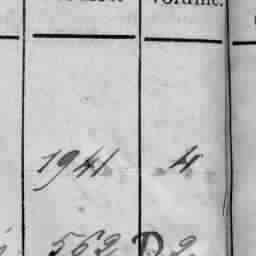 Volume.
1941 4
562 D 2